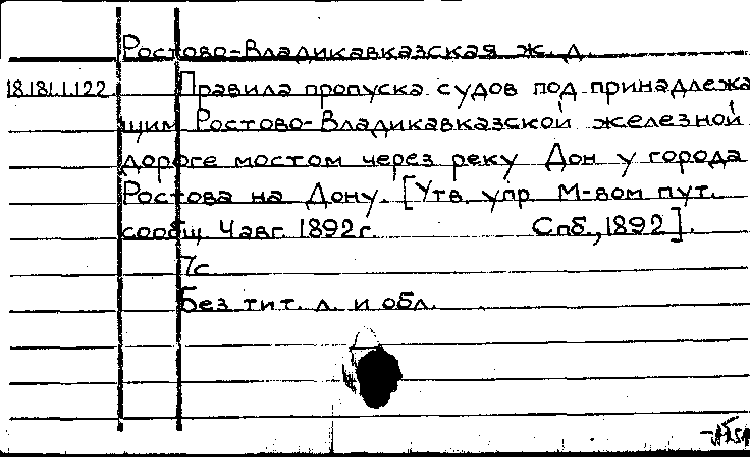 Ростово-Владикавказская ж. д.
18.181.1.122 Правила пропуска судов под принадлежа
щим Ростово-Владикавказской железной
дороге мостом через реку Дон у города
Ростова на Дону. [Утв. упр. М-вом пут.
сообщ. 4 авг. 1892 г. Спб., 1892].
7с
Без тит. л. и обл.